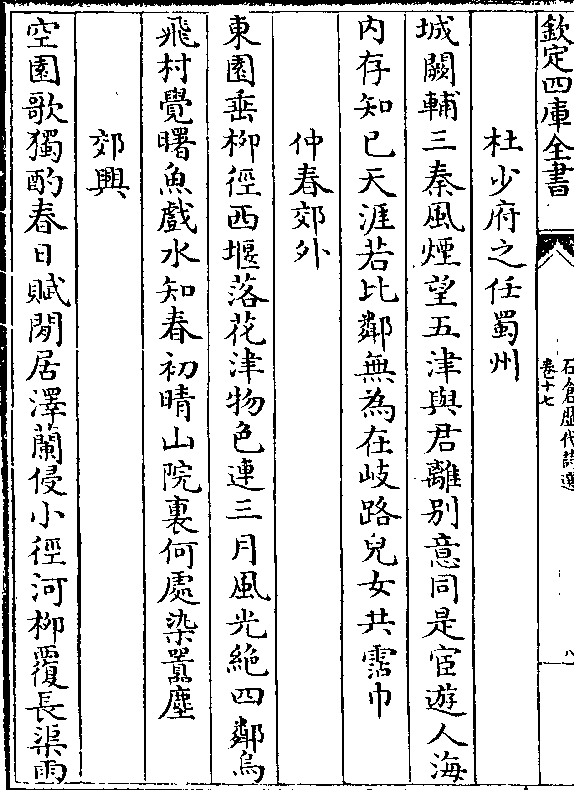 欽定四庫全書
石倉歴代詩選
卷十七
八
杜少府之任蜀州
城闕輔三秦風煙望五津與君離别意同是宦遊人海
内存知已天涯若比鄰無為在岐路兒女共霑巾
仲春郊外
東園垂柳徑西堰落花津物色連三月風光絶四鄰鳥
飛村覺曙魚戲水知春初晴山院裏何處染囂塵
郊興
空園歌獨酌春日賦閒居澤蘭侵小徑河柳覆長渠雨